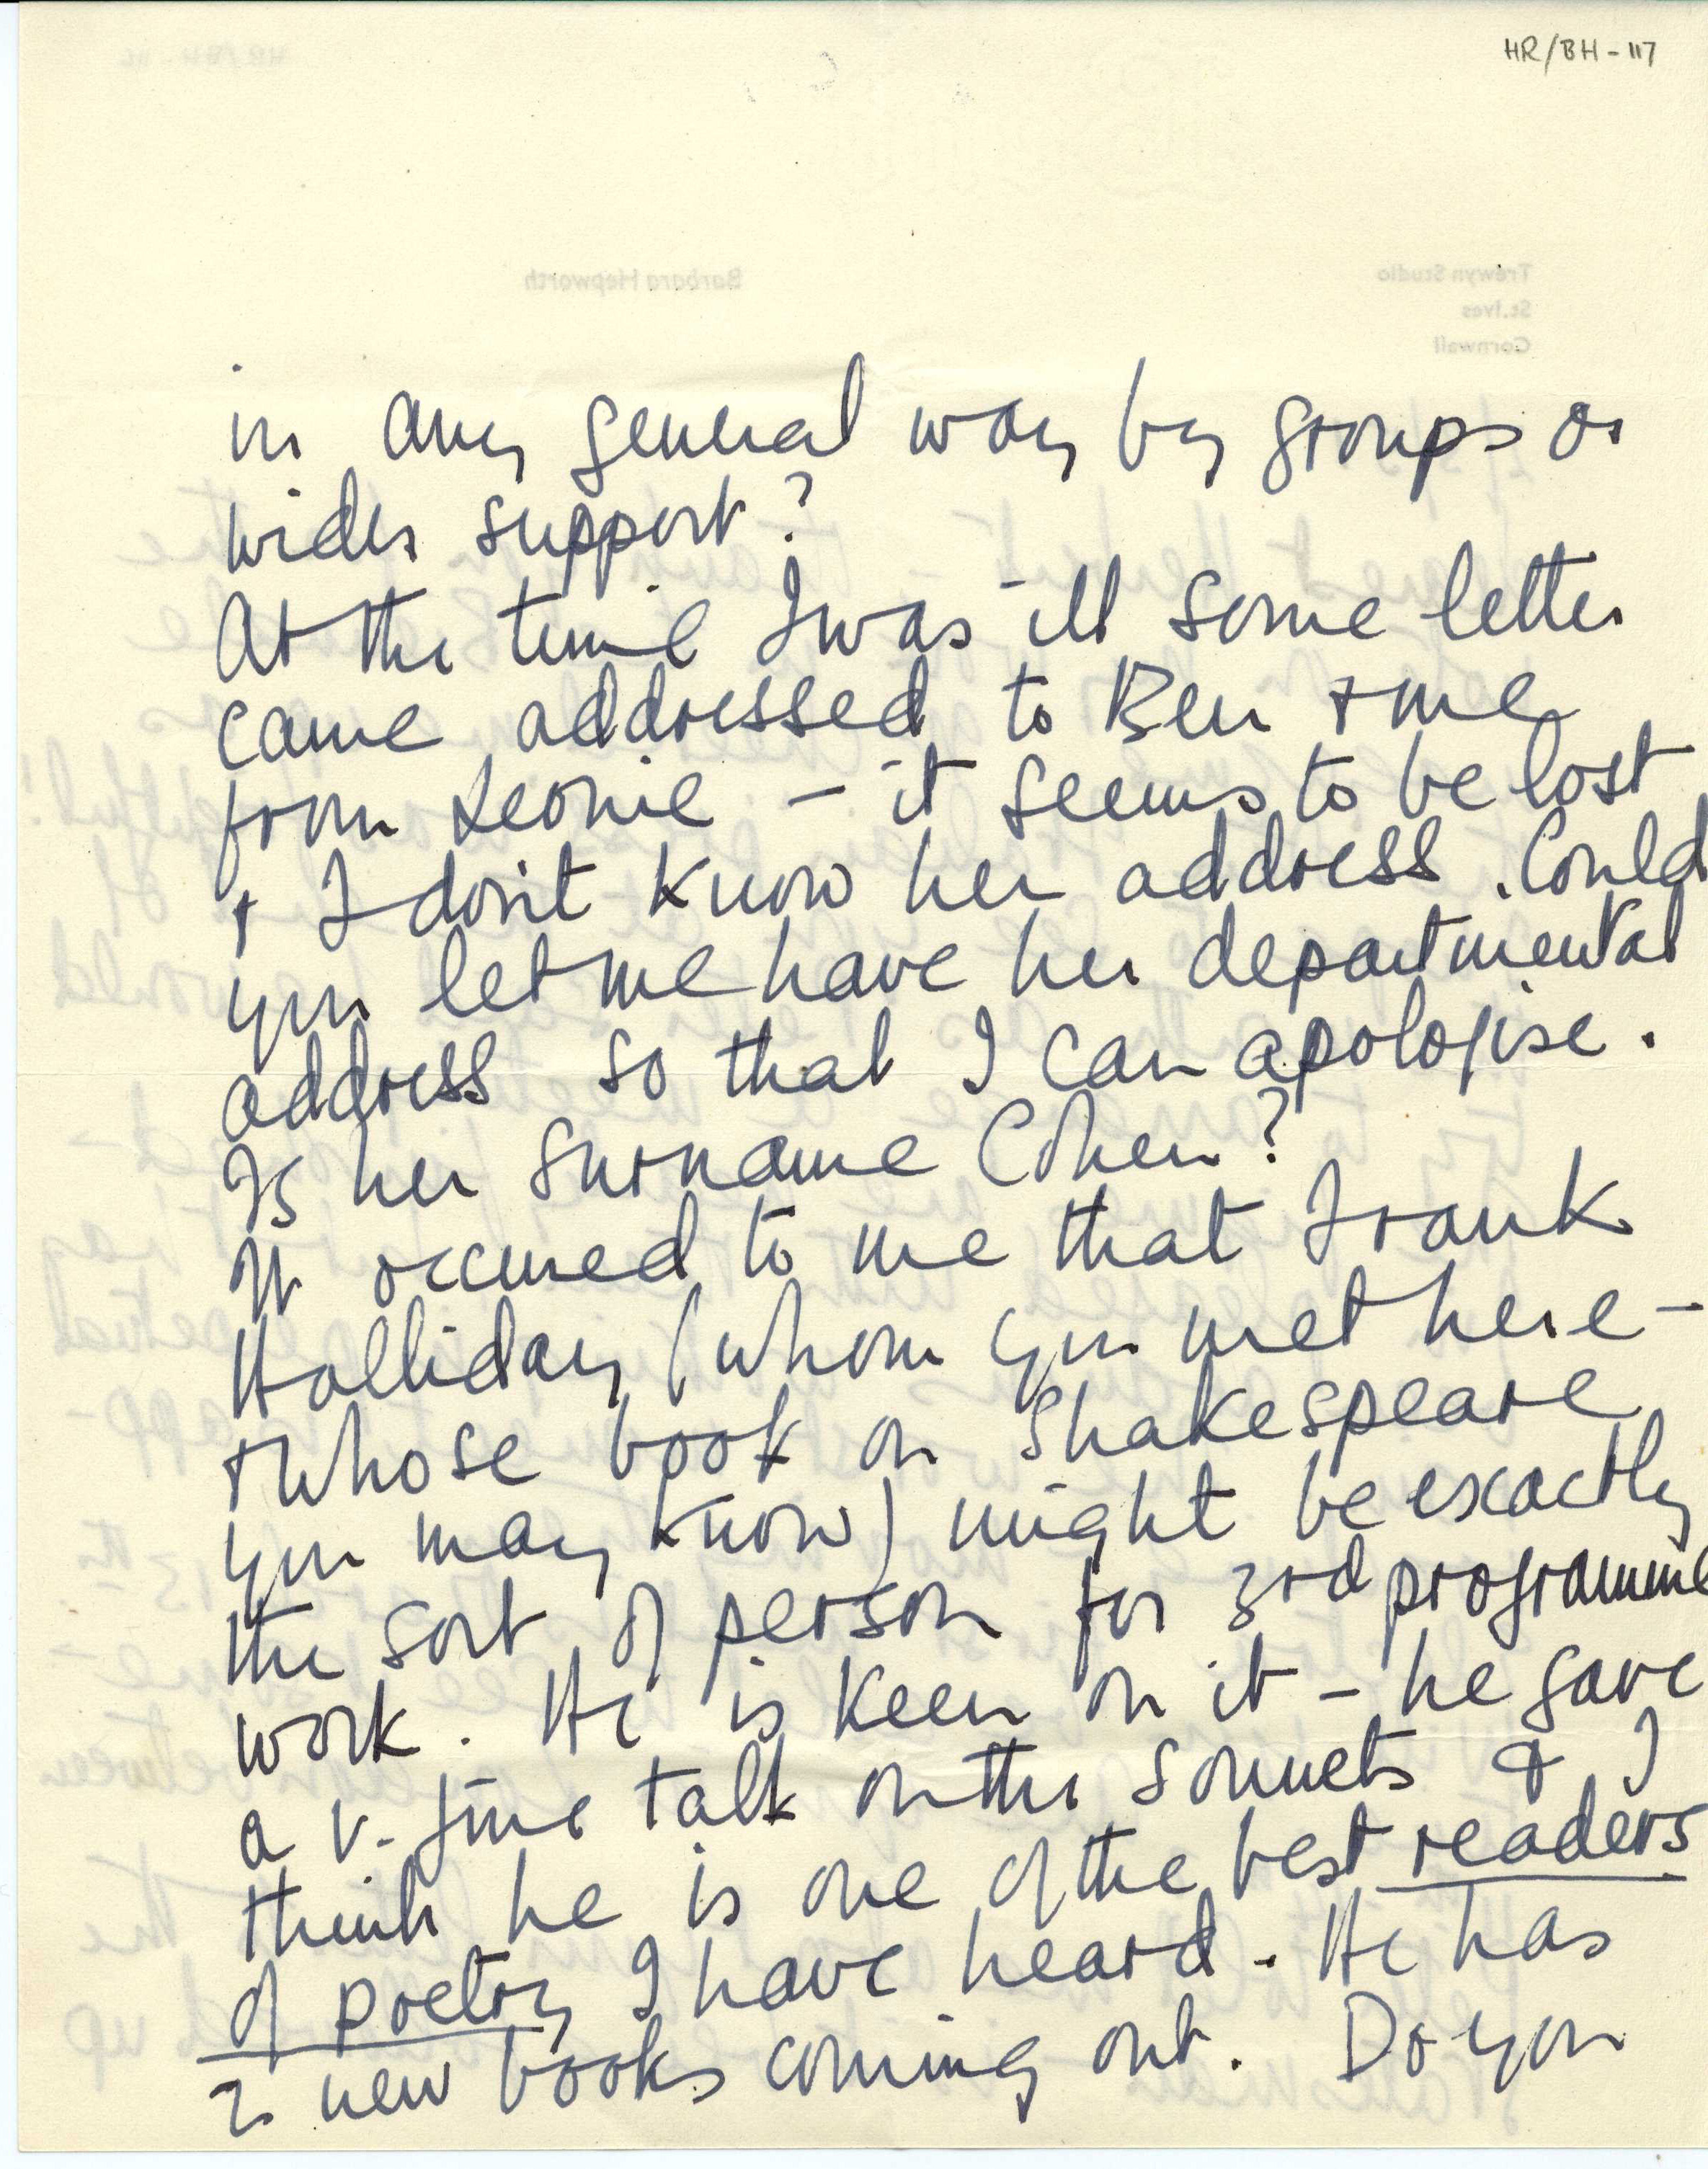 HR/BH - 117
Barbara Hepworth
Trewyn Studio
St. Ives
Cornwall
in any general way by groups or
wider support?
At the time I was ill some letter
came addressed to Ben + me
from Leonie - it seems to be lost
+ I don't know her address. Could
you let me have her departmental
address so that I can apologise.
Is her surname Cohen?
It occured to me that Frank
Halliday (whom you met here -
+ whose book on Shakespeare
you may know) might be exactly
the sort of person for 3rd programme
work. He is keen on it - he gave
a v. fine talk on the Sonnets & I
think he is one of the best readers
of poetry I have heard. He has
2 new books coming out. Do you